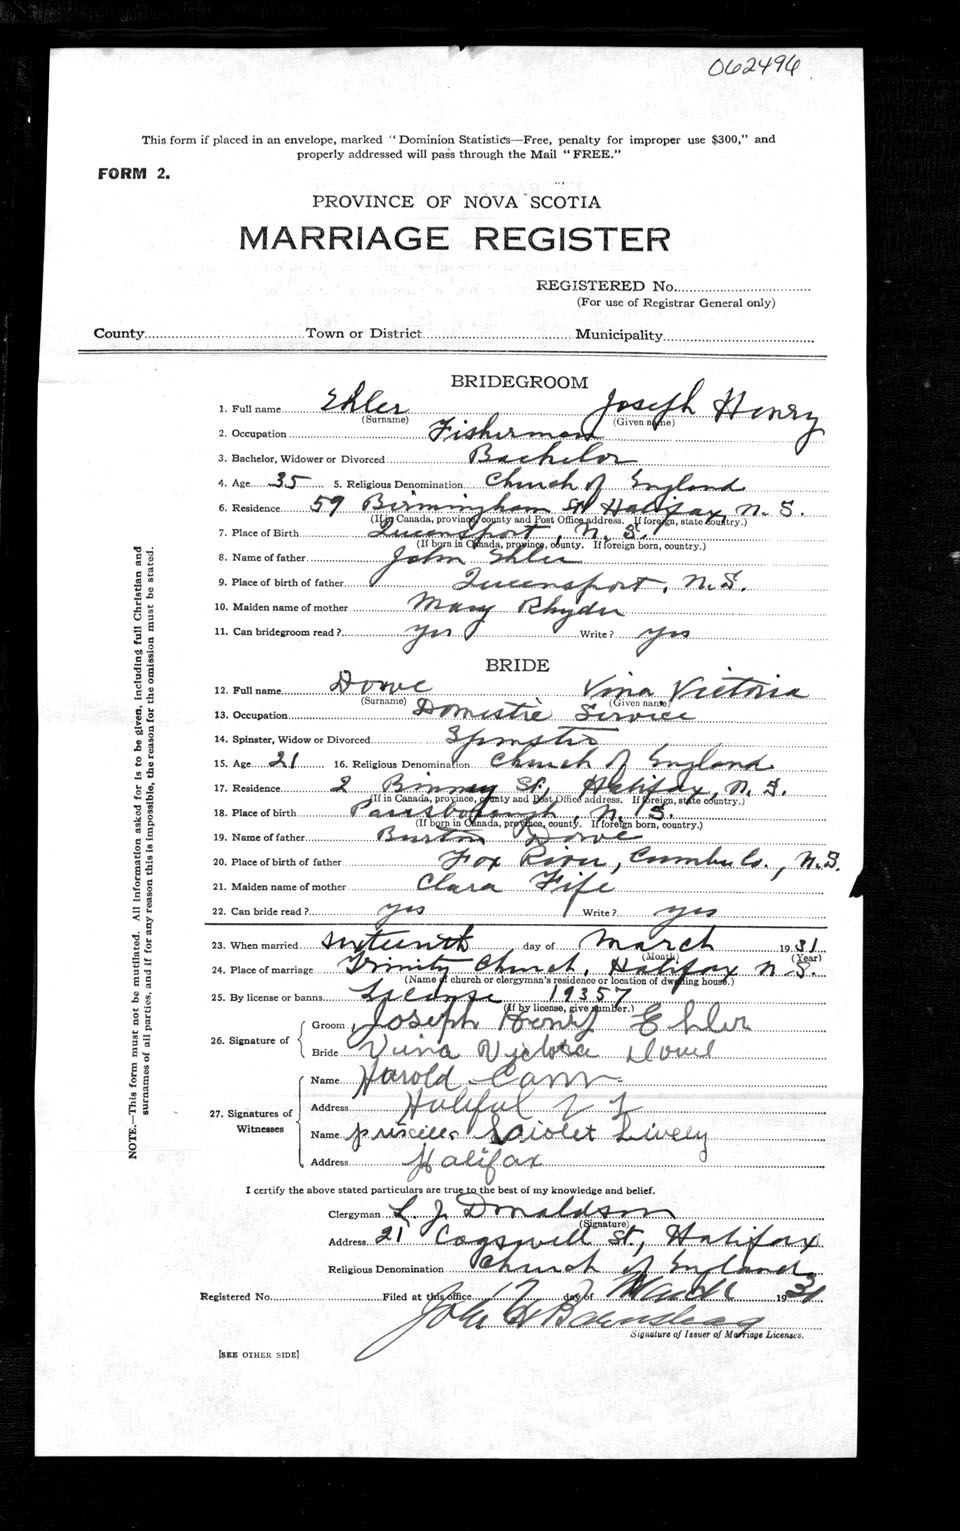 062496
This form if placed in an envelope, marked "Dominion Statistics—Free, penalty for improper use $300," and
properly addressed will pass through the Mail "FREE."
FORM 2.
PROVINCE OF NOVA SCOTIA
MARRIAGE REGISTER
REGISTERED No.
(For use of Registrar General only)
County Town or District Municipality
BRIDEGROOM
1. Full name Ehler Joseph Henry
(Surname) (Given name)
2. Occupation Fisherman
3. Bachelor, Widower or Divorced Bachelor
4. Age 35 5. Religious Denomination Church of England
6. Residence 59 Birmingham St Halifax, N. S.
(If in Canada, province, county and Post Office address. If foreign, state country.)
7. Place of Birth Queensport, N. S.
(If born in Canada, province, county. If foreign born, country.)
8. Name of father John Ehler
9. Place of birth of father Queensport, N.S.
10. Maiden name of mother Mary Rhyder
11. Can bridegroom read? yes Write? yes
BRIDE
12. Full name Dowe Vina Victoria
(Surname) (Given name)
13. Occupation Domestic Service
14. Spinster, Widow or Divorced Spinster
15. Age 21 16. Religious Denomination Church of England
17. Residence 2 Binney St., Halifax, N. S.
(If in Canada, province, county and Post Office address. If foreign, state country.)
18. Place of birth Parrsborough, N. S.
(If born in Canada, province, county. If foreign born, country.)
19. Name of father Burton Dowe
20. Place of birth of father Fox River, Cumb. Co., N.S.
21. Maiden name of mother Clara Fife
22. Can bride read? yes Write? yes
23. When married sixteenth day of March 1931
(Month) (Year)
24. Place of marriage Trinity Church, Halifax N.S.
(Name of church or clergyman's residence or location of dwelling house.)
25. By license or banns License 19357
(If by license, give number.)
26. Signature of
Groom Joseph Henry Ehler
Bride Vina Victoria Dowe
27. Signatures of Witnesses
Name Harold Cann
Address Halifax N S
Name Priscilla Violet Lively
Address Halifax
I certify the above stated particulars are true to the best of my knowledge and belief.
Clergyman L. J. Donaldson
(Signature)
Address 21 Cogswell St., Halifax
Religious Denomination Church of England
Registered No. Filed at this office day of March 1931
John
Signature of Issuer of Marriage Licenses.
[SEE OTHER SIDE]
NOTE.—This form must not be mutilated. All information asked for is to be given, including full Christian and
surnames of all parties, and if for any reason this is impossible, the reason for the omission must be stated.